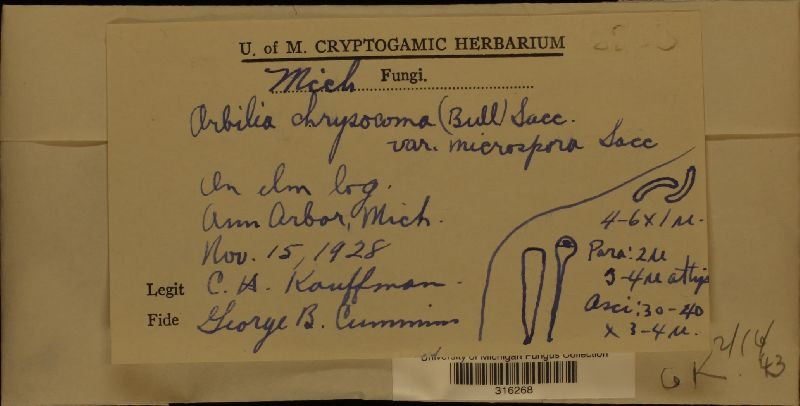 U. of M. CRYPTOGAMIC HERBARIUM
Mich Fungi.
Orbilia chrysocoma (Bull) Sacc.
var. microspora Sacc
On elm log.
Ann Arbor, Mich.
Nov. 15, 1928
Legit C. H. Kauffman.
Fide George B. Cummins
4-6x1 µ.
Para: 2µ
3-4µ at tip
Asci: 30-40
x 3-4 µ.
University of Michigan Fungus Collection
316268
OK 2/16/43